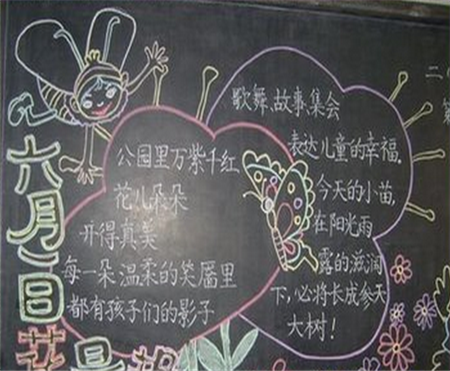 六月一日
公园里万紫千红
花儿朵朵
开得真美
每一朵温柔的笑靥里
都有孩子们的影子
歌舞、故事、集会
表达儿童的幸福。
今天的小苗,
在阳光雨
露的滋润
下,必将长成参天
大树!
二(
花是